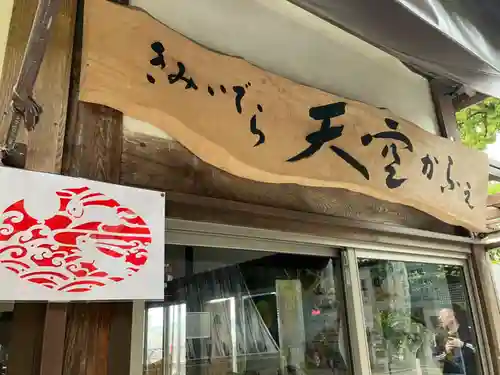 きみいでら天空かふぇ